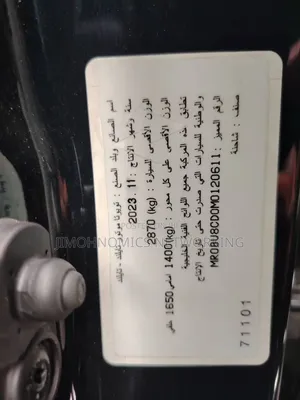 اسم الصانع وبلد الصنع : تويوتا موتور تايلاند - تايلاند
سنة وشهر الانتاج : 2023 . 11
الوزن الأقصى للسيارة : 2870 (kg)
الوزن الأقصى على كل محور : 1400(kg) أمامي 1650 خلفي
تطابق هذه المركبة جميع اللوائح الفنية الخليجية
والوطنية للسيارات التي صدرت حتى تاريخ الانتاج
الرقم المميز : MR0BU8CD0M0120611
صنف : شاحنة
71101
JIMOHNOMICS NETWORKING